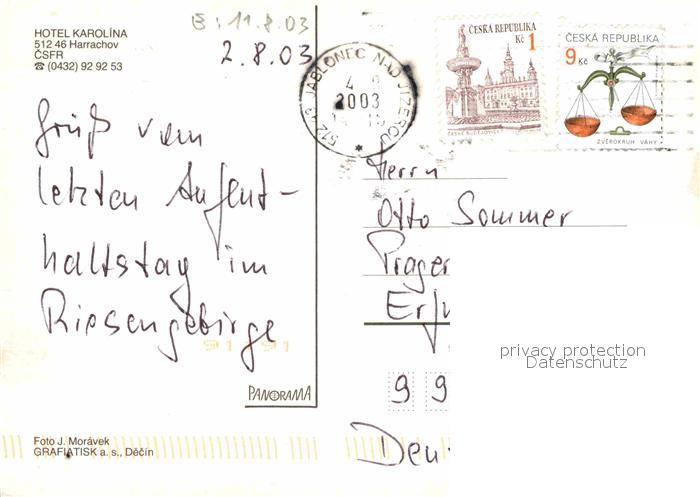 HOTEL KAROLÍNA
512 46 Harrachov
ČSFR
☎ (0432) 92 92 53
E: 11.8.03
2.8.03
Gruß vom
letzten Aufent-
haltstag im
Riesengebirge
91 91
PANORAMA
Foto J. Morávek
GRAFIATISK a. s., Děčín
JABLONEC NAD JIZEROU
2003
ČESKÁ REPUBLIKA
Kč 1
ČESKÉ BUDĚJOVICE
ČESKÁ REPUBLIKA
9 Kč
ZVĚROKRUH VÁHY
Herrn
Otto Sommer
Prager
Erfu
9 9
Deu
privacy protection
Datenschutz